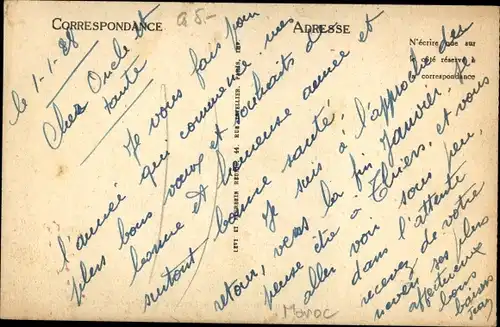 CORRESPONDANCE
95.-
ADRESSE
N'écrire que sur
le côté réservé à
la correspondance
le 1-1-28
Cher Oncle et
tante
Je vous fais pour
l'année qui commence mes
plus bons vœux et souhaits de
bonne et heureuse année et
surtout bonne santé.
Je suis à l'approche des
retour, vers la fin Janvier. Je
pense être à Thiers, et vous
aller voir sous peu,
dans l'attente
recevez de votre
neveu ses plus
affectueux
bons
baisers
LEVY ET NEURDEIN RÉUNIS, 44, RUE LETELLIER, PARIS, IMP.
Maroc